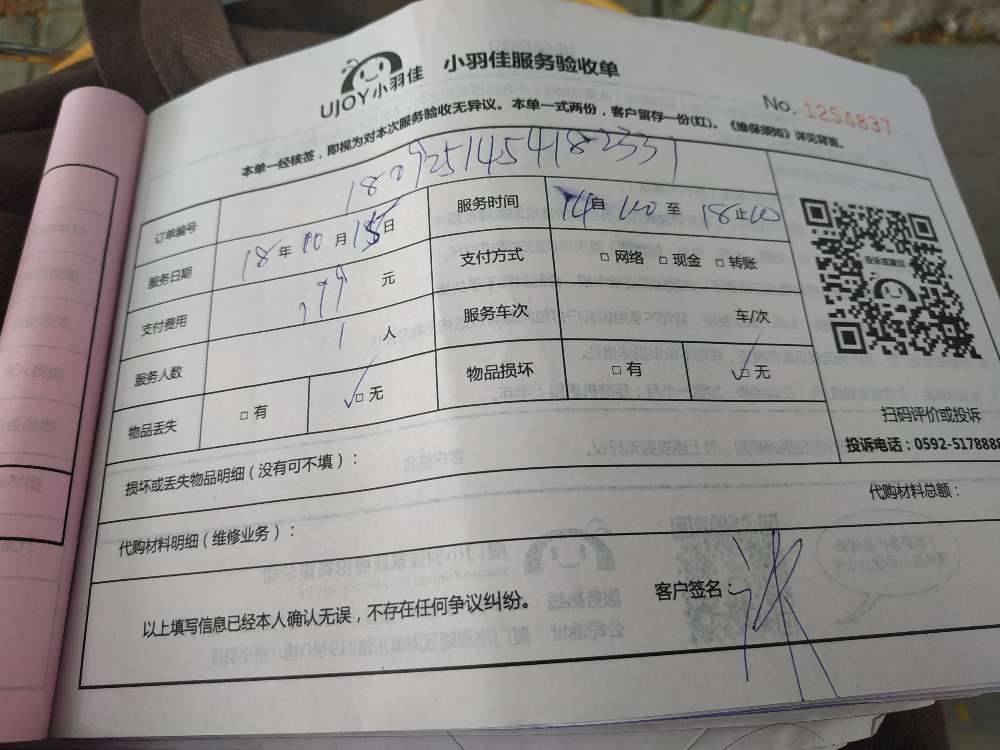 UJOY小羽佳 小羽佳服务验收单
No. 1254837
本单一经核签，即视为对本次服务验收无异议。本单一式两份，客户留存一份(红)。《维保须知》详见背面。
订单编号 1809251454182331
服务日期 18年10月15日 服务时间 14自00至18止00
支付费用 199元 支付方式 □网络 □现金 □转账
服务人数 1人 服务车次 车/次
物品丢失 □有 ☑无 物品损坏 □有 ☑无
投诉或建议
扫码评价或投诉
投诉电话：0592-5178888
损坏或丢失物品明细（没有可不填）：
代购材料明细（维修业务）： 代购材料总额：
以上填写信息已经本人确认无误，不存在任何争议纠纷。 客户签名：